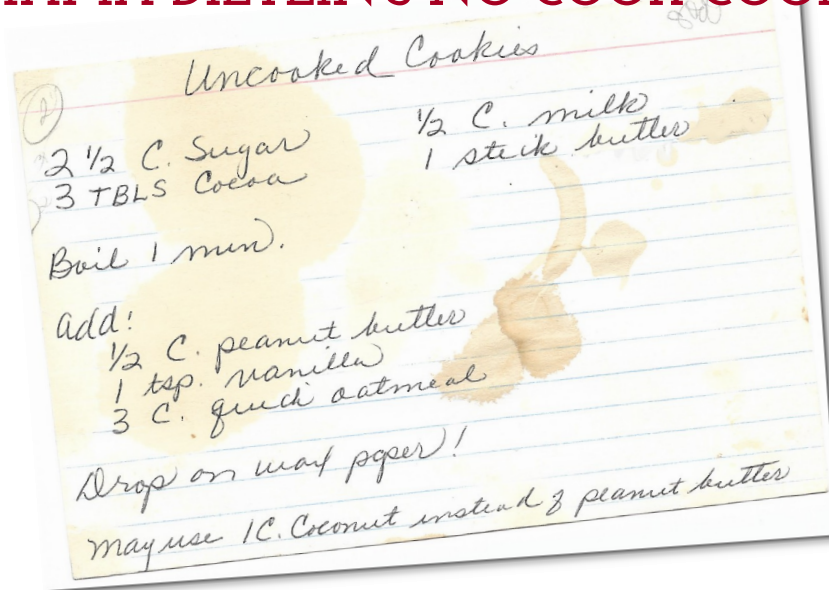 DIETLEIN'S NO COOK COOK
Uncooked Cookies
2
2 1/2 C. Sugar
3 TBLS Cocoa
1/2 C. milk
1 stick butter
Boil 1 min.
add!
1/2 C. peanut butter
1 tsp. vanilla
3 C. quick oatmeal
Drop on wax paper!
May use 1C. Coconut instead of peanut butter